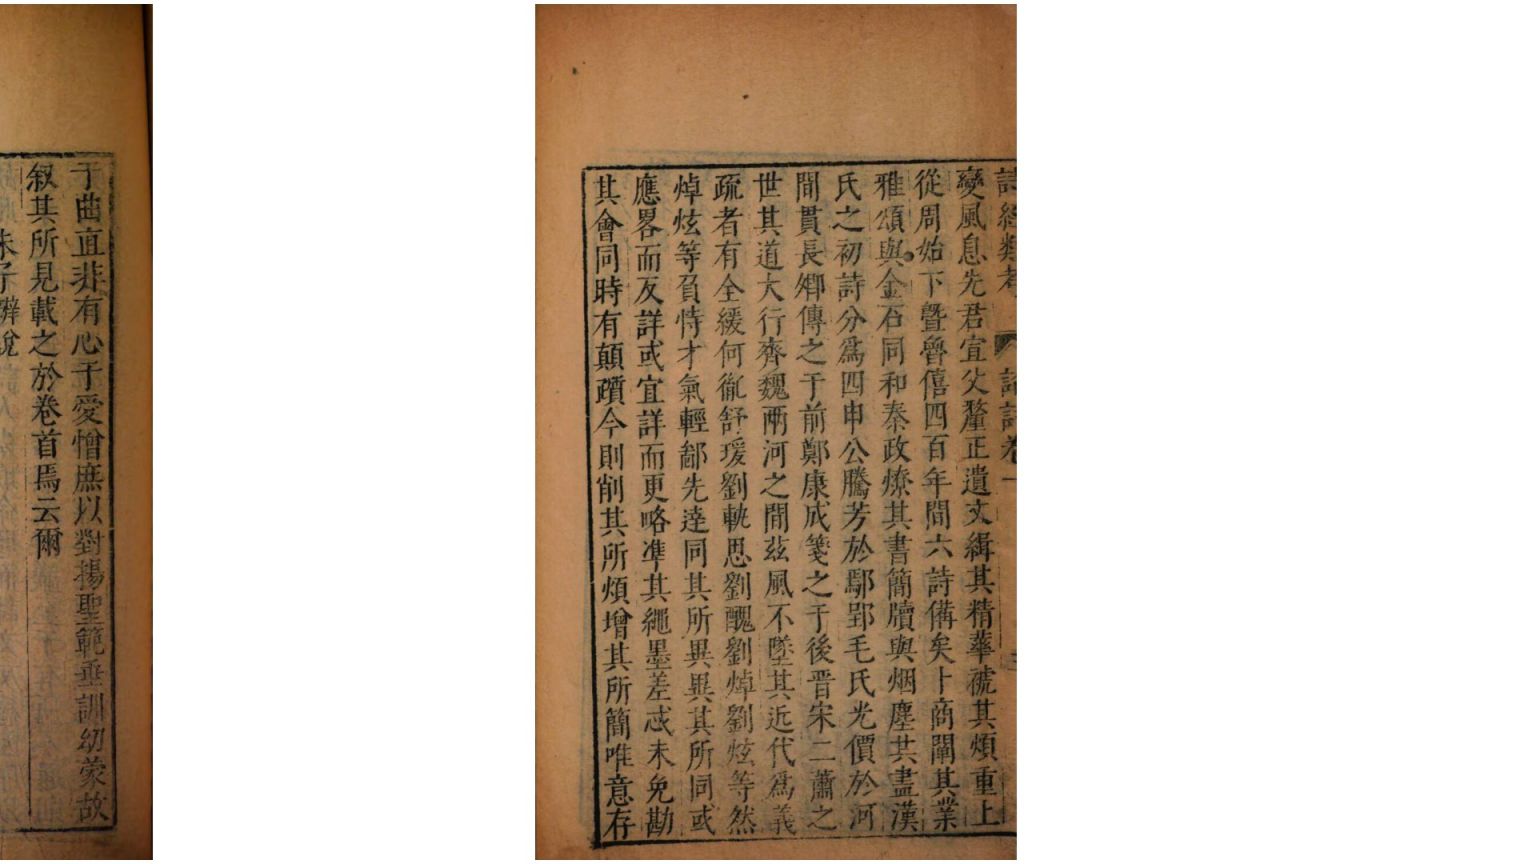 詩經類考 論詩卷一
變風息先君宣父釐正遺文緝其精華褫其煩重上
從周始下暨魯僖四百年間六詩備矣卜商闡其業
雅頌與金石同和秦政燎其書簡牘與烟塵共盡漢
氏之初詩分爲四申公騰芳於鄢郢毛氏光價於河
間貫長卿傳之于前鄭康成箋之于後晋宋二蕭之
世其道大行齊魏兩河之間玆風不墜其近代爲義
疏者有全緩何胤舒瑗劉軌思劉醜劉焯劉炫等然
焯炫等負恃才氣輕鄙先達同其所異異其所同或
應畧而反詳或宜詳而更略准其繩墨差忒未免勘
其會同時有顛躓今則削其所煩增其所簡唯意存
于曲直非有心于愛憎庶以對揚聖範垂訓幼蒙故
叙其所見載之於卷首焉云爾
朱子辨說